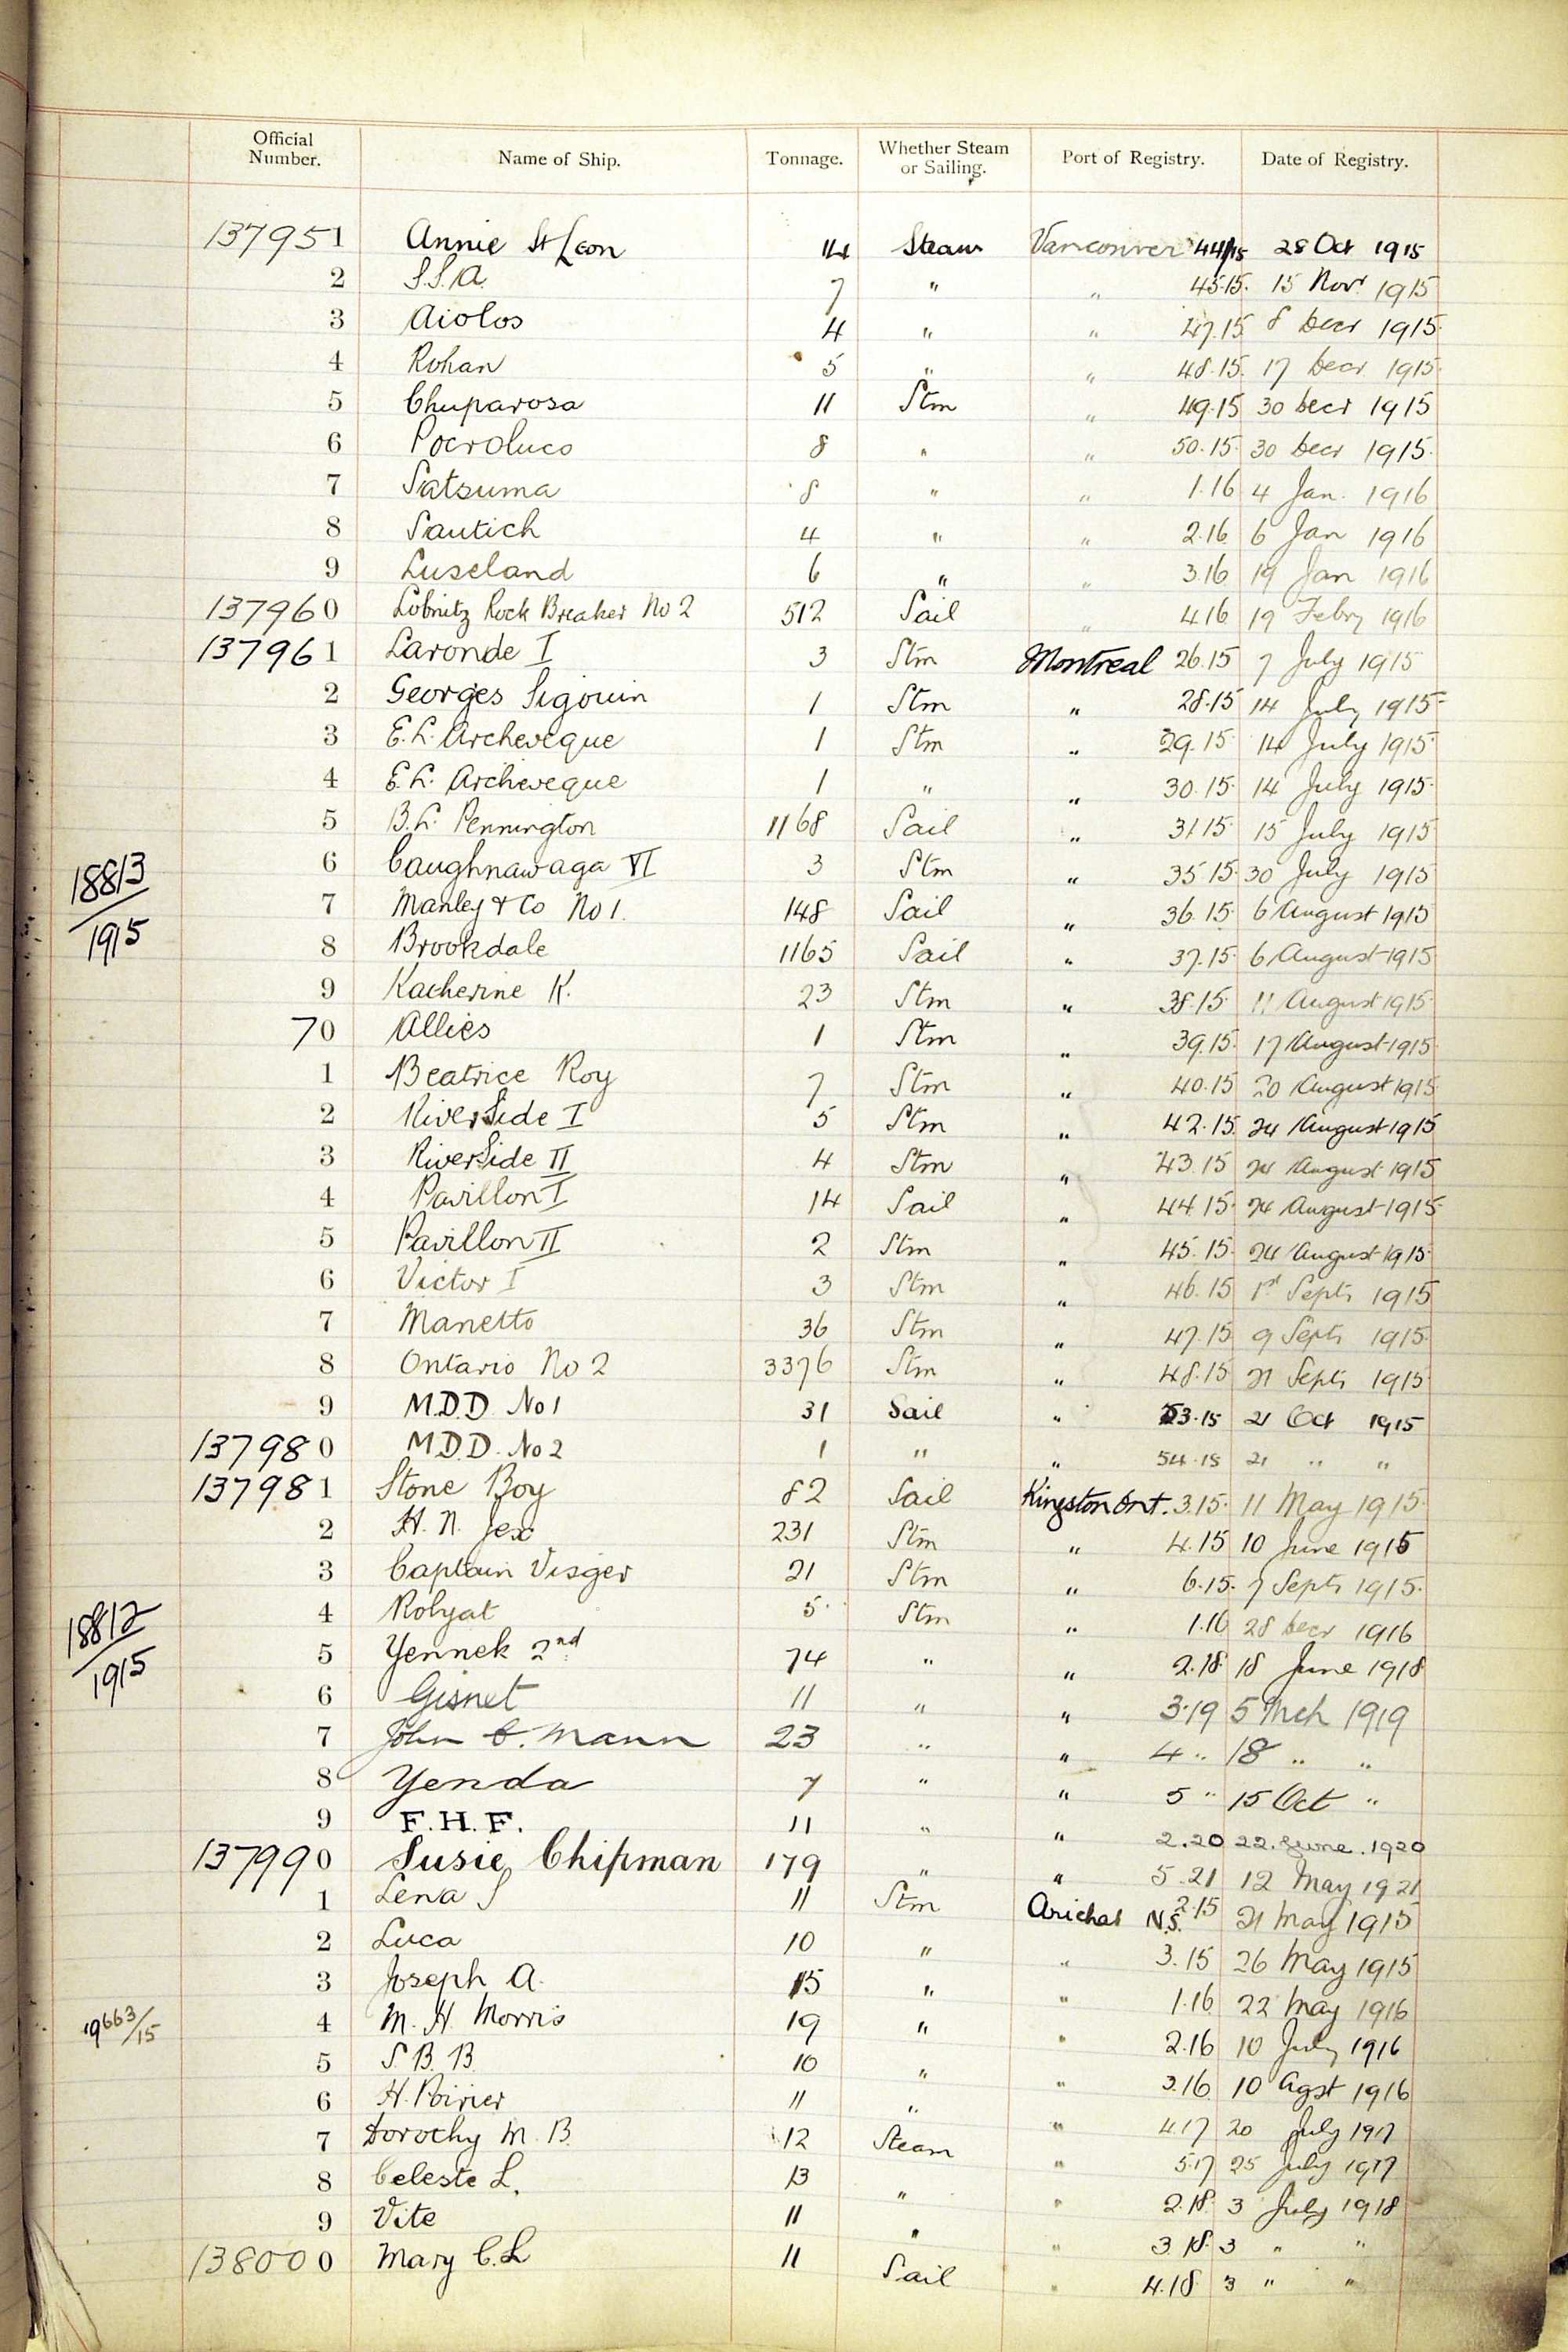 Official Number. Name of Ship. Tonnage. Whether Steam or Sailing. Port of Registry. Date of Registry.
137951 Annie St Leon 14 Steam Vancouver 44/15 28 Oct 1915
2 S.S.A. 7 " " 45.15. 15 Novr 1915
3 Aiolos 4 " " 47.15 8 Decr 1915
4 Rohan 5 " " 48.15. 17 Decr 1915
5 Chuparosa 11 Stm " 49.15 30 Decr 1915
6 Pocroluco 8 " " 50.15. 30 Decr 1915.
7 Satsuma 8 " " 1.16 4 Jan. 1916
8 Sautich 4 " " 2.16 6 Jan 1916
9 Luseland 6 " " 3.16 19 Jan 1916
137960 Lobnitz Rock Breaker No 2 512 Sail " 4.16 19 Febry 1916
137961 Laronde I 3 Stm Montreal 26.15 7 July 1915
2 Georges Sigouin 1 Stm " 28.15 14 July 1915
3 E. L. Archeveque 1 Stm " 29.15 14 July 1915
4 E. L. Archeveque 1 " " 30.15. 14 July 1915.
5 B. L. Pennington 1168 Sail " 31.15 15 July 1915
6 Caughnawaga VI 3 Stm " 35.15. 30 July 1915
18813/1915
7 Manley & Co No 1. 148 Sail " 36.15. 6 August 1915
8 Brookdale 1165 Sail " 37.15. 6 August 1915
9 Katherine K. 23 Stm " 38.15. 11 August 1915.
70 Allies 1 Stm " 39.15. 17 August 1915
1 Beatrice Roy 7 Stm " 40.15 20 August 1915
2 RiverSide I 5 Stm " 42.15. 24 August 1915
3 RiverSide II 4 Stm " 43.15 24 August 1915
4 Pavillon I 14 Sail " 44.15. 24 August 1915
5 Pavillon II 2 Stm " 45.15. 24 August 1915.
6 Victor I 3 Stm " 46.15 1st Septr 1915
7 Manetto 36 Stm " 47.15 9 Septr 1915.
8 Ontario No 2 3376 Stm " 48.15 21 Septr 1915
9 M.D.D. No 1 31 Sail " 53.15 21 Oct 1915
137980 M.D.D. No 2 1 " " 54.15 21 " "
137981 Stone Boy 82 Sail Kingston Ont. 3.15. 11 May 1915.
2 H. N. Jex 231 Stm " 4.15 10 June 1915
3 Captain Visger 21 Stm " 6.15. 7 Septr 1915.
4 Rolyat 5 Stm " 1.16 28 Decr 1916
18812/1915
5 Yennek 2nd 74 " " 2.18. 18 June 1918
6 Gisnet 11 " " 3.19 5 Mch 1919
7 John C. Mann 23 " " 4 " 18 " "
8 Yenda 7 " " 5 " 15 Oct "
9 F.H.F. 11 " " 2.20 22. June. 1920
137990 Susie Chipman 179 " " 5.21 12 May 1921
1 Lena S 11 Stm Arichat N.S. 2.15 21 May 1915
2 Luca 10 " " 3.15 26 May 1915
3 Joseph A. 15 " " 1.16 22 May 1916
4 M. H. Morris 19 " " 2.16 10 July 1916
19663/15
5 S. B. B. 10 " " 3.16 10 Agst 1916
6 H. Poirier 11 " " 4.17 20 July 1917
7 Dorothy M. B. 12 Steam " 5.17 25 July 1917
8 Celeste L. 13 " " 2.18. 3 July 1918
9 Vite 11 " " 3.18. 3 " "
138000 Mary C. L 11 Sail " 4.18 3 " "